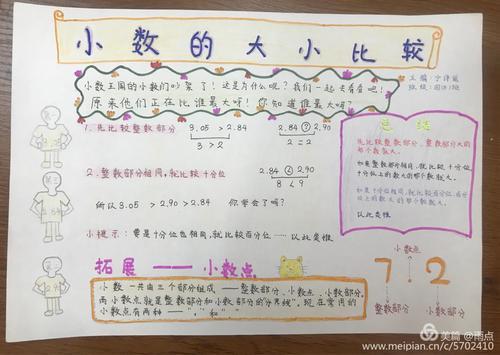 小数的大小比较
主编:宁泽
班级:四(3)班
小数王国的小数们吵架了!这是为什么呢?我们一起去看看吧!
原来他们正在比谁最大呀!你知道谁最大呀?
1.先比较整数部分
3.05 > 2.84
3 > 2
2.84 ? 2.90
2 = 2
2.整数部分相同,就比较十分位
2.84 < 2.90
8 < 9
所以3.05 > 2.90 > 2.84 你学会了吗?
小提示:要是十分位也相同,就比较百分位……以此类推
总结
先比较整数部分,整数部分大的那个数就大。
如果整数部分相同,就比较十分位
十分位上的数大的那个数就大。
如果十分位相同,就比较百分位,百分位上的数大的那个数就大
以此类推
拓展——小数点
小数一共由三个部分组成——整数部分、小数点、小数部分。
而小数点就是整数部分和小数部分的"分界线"。现在常用的
小数点有两种——"."和","
小数点
7.2
整数部分
小数部分
美篇@雨点
www.meipian.cn/c/5702410